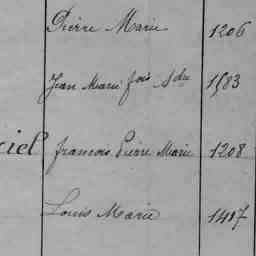 Pierre Marie 1206
Jean Marie fois 1583
ciel francois Pierre Marie 1208
Louis Marie 1417